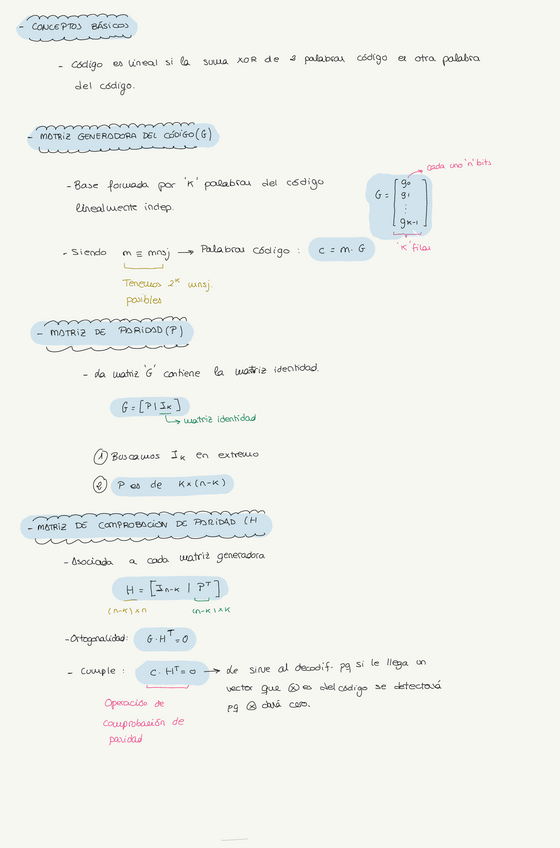 - CONCEPTOS BÁSICOS
- Código es lineal si la suma XOR de 2 palabras código es otra palabra
del código.
- MATRIZ GENERADORA DEL CÓDIGO (G)
- Base formada por 'K' palabras del código
linealmente indep.
G = [ g0 g1 ⋮ gK-1 ]
cada uno 'n' bits
'K' filas
- Siendo m ≡ mnsj → Palabras código : c = m · G
Tenemos 2^K mnsj.
posibles
- MATRIZ DE PARIDAD (P)
- La matriz 'G' contiene la matriz identidad.
G = [P | IK]
→ matriz identidad
① Buscamos IK en extremo
② P es de K x (n-K)
- MATRIZ DE COMPROBACIÓN DE PARIDAD (H
- Asociada a cada matriz generadora
H = [In-K | P^T]
(n-K) x n (n-K) x K
- Ortogonalidad: G · H^T = 0
- Cumple : C · H^T = 0 → Le sirve al decodif. pq si le llega un
vector que Ⓧ es del código se detectará
pq Ⓧ dará cero.
Operación de
comprobación de
paridad